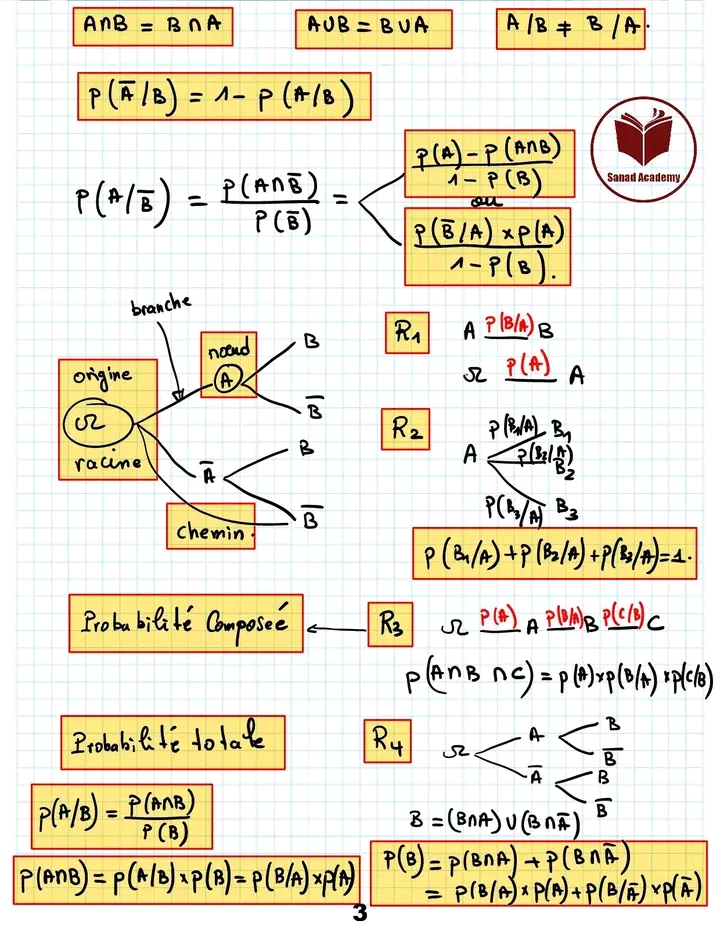 A∩B = B∩A
A∪B = B∪A
A/B ≠ B/A.
p(A̅/B) = 1 - p(A/B)
Sanad Academy
p(A/B̅) = p(A∩B̅) / p(B̅) =
p(A) - p(A∩B) / 1 - p(B)
ou
p(B̅/A) × p(A) / 1 - p(B).
branche
origine
Ω
racine
nœud
A
B
B̅
A̅
B
B̅
chemin.
R1
A p(B/A) B
Ω p(A) A
R2
A p(B1/A) B1
p(B2/A) B2
p(B3/A) B3
p(B1/A) + p(B2/A) + p(B3/A) = 1.
Probabilité Composeé
R3
Ω p(A) A p(B/A) B p(C/B) C
p(A∩B∩C) = p(A)×p(B/A)×p(C/B)
Probabilité totale
R4
Ω
A
B
B̅
A̅
B
B̅
B = (B∩A) ∪ (B∩A̅)
p(A/B) = p(A∩B) / p(B)
p(A∩B) = p(A/B)×p(B) = p(B/A)×p(A)
p(B) = p(B∩A) + p(B∩A̅)
= p(B/A)×p(A) + p(B/A̅)×p(A̅)
3